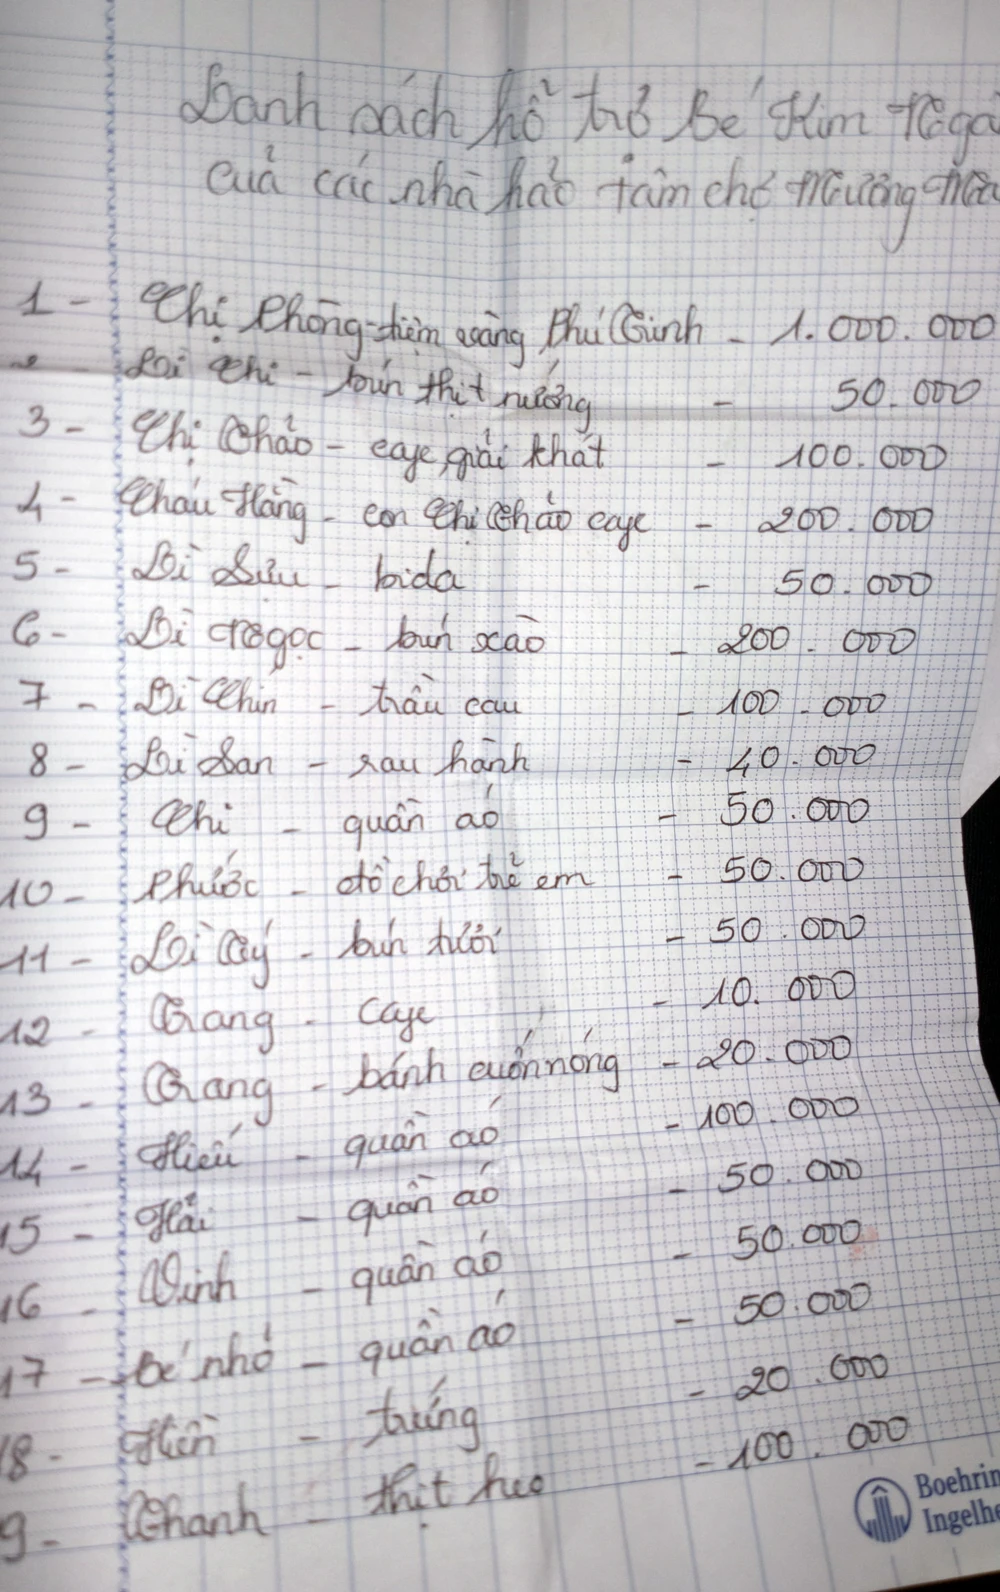 Danh sách hổ trợ Bé Kim Nga
của các nhà hảo tâm chợ Mương Mán
1 - Chị Phông - tiệm vàng Phú Trinh - 1.000.000
2 - Dì Chi - bún thịt nướng - 50.000
3 - Chị Thảo - cafe, giải khát - 100.000
4 - Cháu Hằng - con Chị Thảo cafe - 200.000
5 - Dì Sửu - bida - 50.000
6 - Dì Ngọc - bún xào - 200.000
7 - Dì Chín - trầu cau - 100.000
8 - Dì San - rau hành - 40.000
9 - Chi - quần áo - 50.000
10 - Phước - đồ chơi trẻ em - 50.000
11 - Dì Tý - bún tươi - 50.000
12 - Trang - cafe - 10.000
13 - Trang - bánh cuốn nóng - 20.000
14 - Hiếu - quần áo - 100.000
15 - Hải - quần áo - 50.000
16 - Vinh - quần áo - 50.000
17 - Bé nhỏ - quần áo - 50.000
18 - Hiền - trứng - 20.000
9 - Thanh - thịt heo - 100.000
Boehrin
Ingelhe